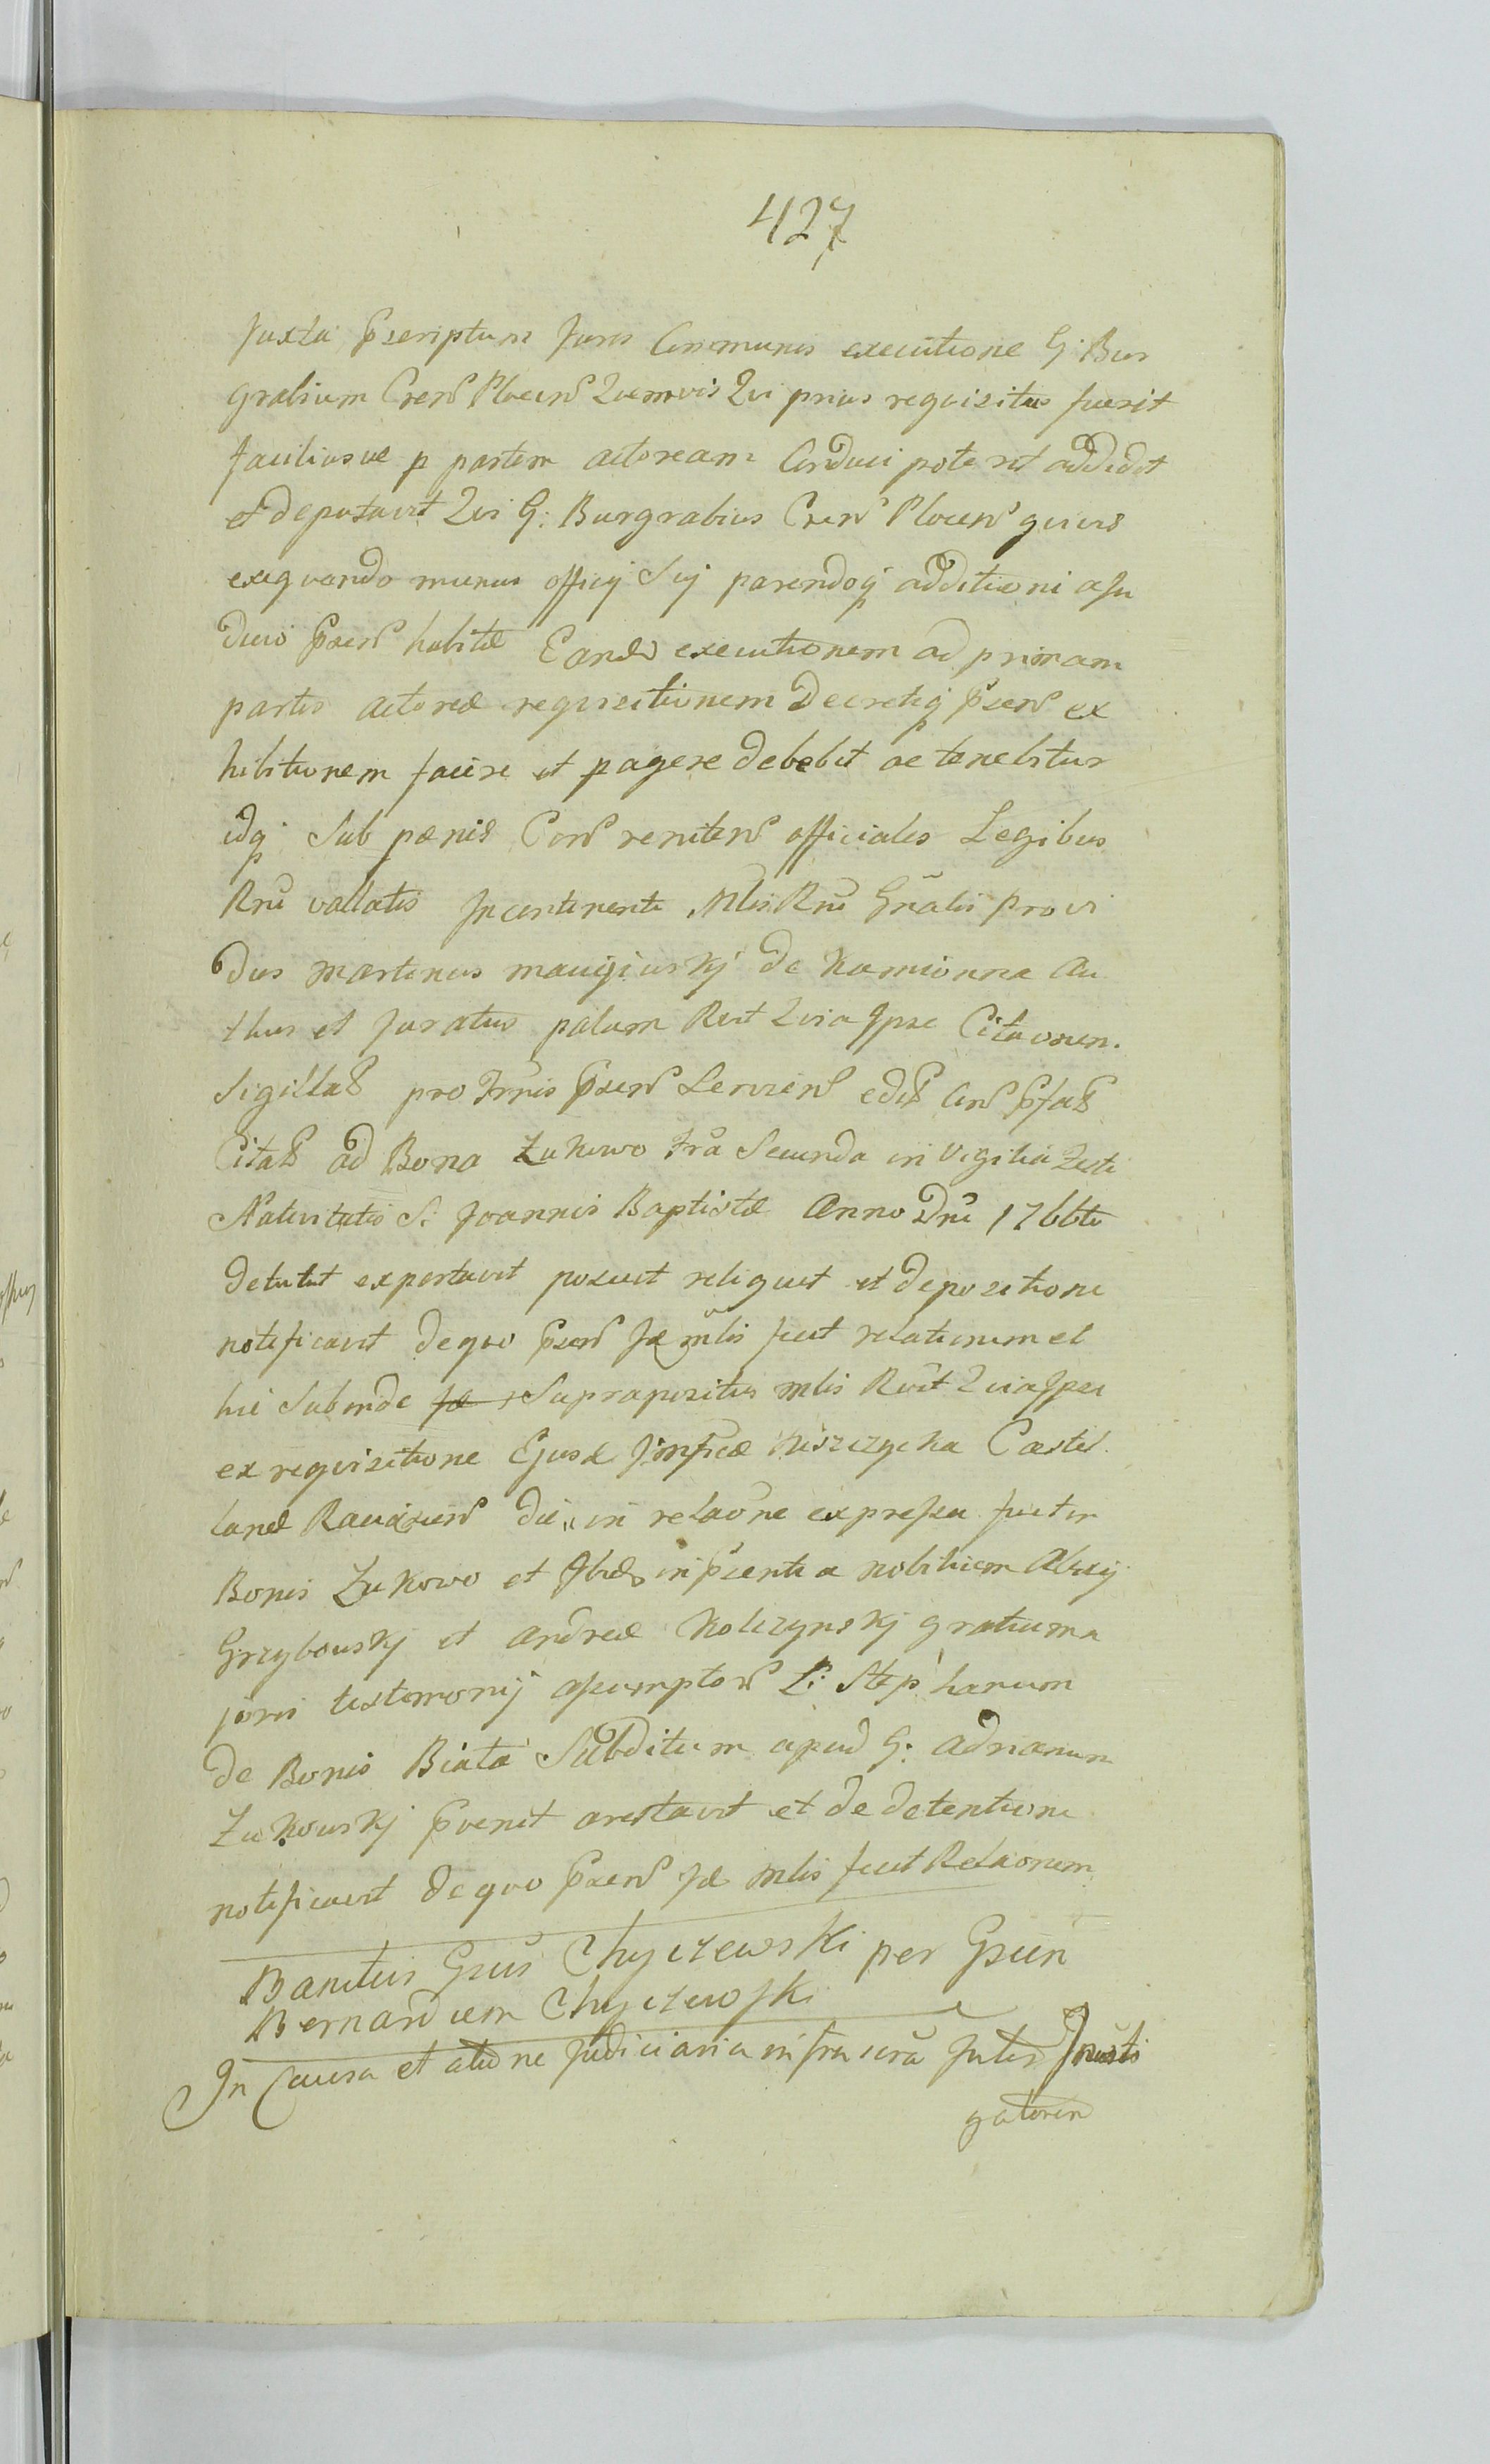 427
Juxta pscriptum Juris Communis executione G: Bur
grabium Cren Plocen Quemvis Qui prius requisitus fuerit
faciliusve p partem actoream Conduci poterit addidit
et deputavit Qui G: Burgrabius Cren Plocen quivis
exequendo munus officij Sui parendoq additioni a Ju
dicio psen habitæ Eand executionem ad primam
partis actoreæ requisitionem Decretiq psen ex
hibitionem facere et pagere debebit ac tenebitur
idq Sub pænis Con reniten officiales Legibus
Rni vallatis Incontinenti Mlis Rni Gnalis Provi
dus Martinus de Kamionna Au
thus et Juratus palam Rcit Quia Ipse Citaonem
Sigillat pro Trnis psen Servien edit Con pfat
Citat ad Bona Zukowo Fra Secunda in Vigilia Festi
Nativitatis S: Joannis Baptistæ Anno Dni 1766to
detulit exportavit posuit reliquit et depositione
notificavit de quo psen Jd mlis fecit relationem et
hic Subinde Jd Suprapositus mlis Rcit Quia Ipse
ex requisitione Ejusd Jmficæ Kiszczycka Castel
lanæ Raciązen die in relaone expressa fuit in
Bonis Zukowo et Ibid in psentia nobilium Alexij
Grzybowskj et Andreæ Kolczynskj gratia ma
joris testimonij assumptor L: Stephanum
de Bonis Biała Subditum apud G: Adrianum
Zukowskj pvenit arestavit et de detentione
notificavit de quo psen Jd mlis fecit Relaonem
Banitus Gsus Chyczewski per Gsum
Bernardum Chyczewski
In Causa et actione Judiciaria infrascra Inter Insti
gatorem